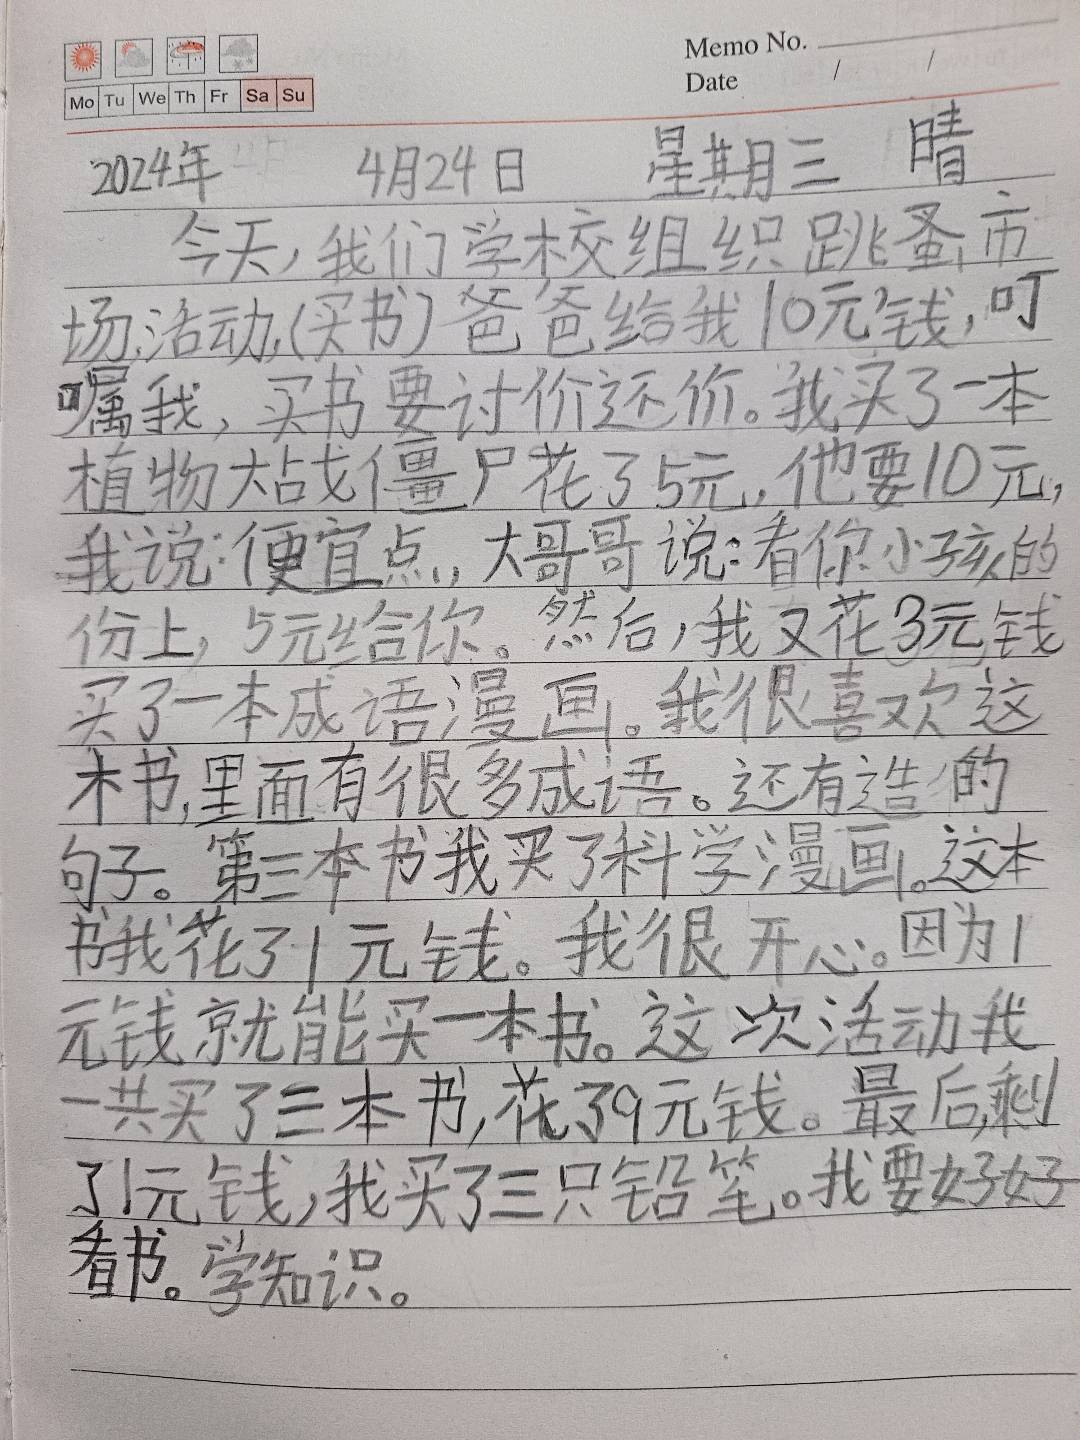 Memo No.
Mo Tu We Th Fr Sa Su
Date / /
2024年 4月24日 星期三 晴
今天,我们学校组织跳蚤市
场,活动,(买书)爸爸给我10元钱,叮
嘱我,买书要讨价还价。我买了一本
植物大战僵尸花了5元,他要10元,
我说:便宜点,,大哥哥说:看你小孩的
份上,5元给你。然后,我又花3元钱
买了一本成语漫画。我很喜欢这
本书,里面有很多成语。还有造的
句子。第三本书我买了科学漫画。这本
书我花了1元钱。我很开心。因为1
元钱就能买一本书。这次活动我
一共买了三本书,花了9元钱。最后,剩
了1元钱,我买了三只铅笔。我要好好
看书。学知识。